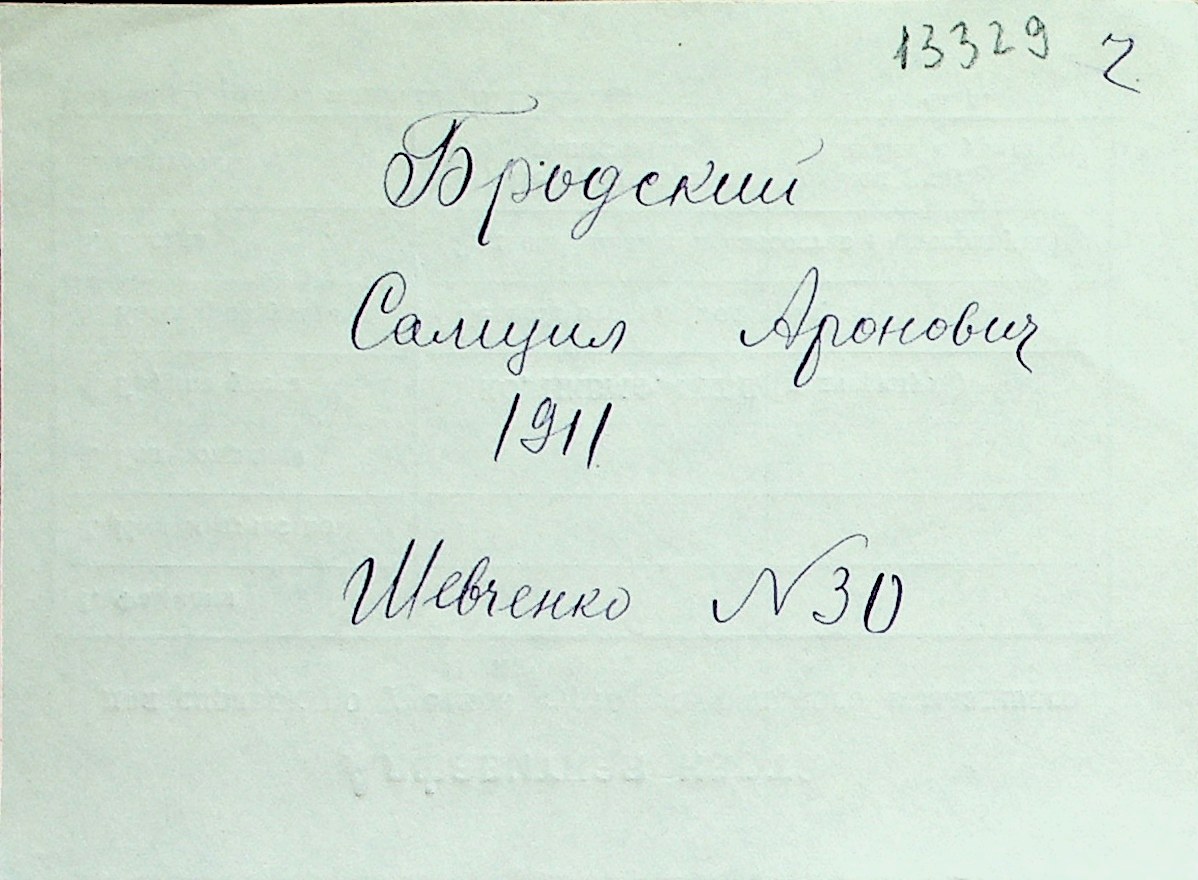 13329 ч
Бродский
Самуил Аронович
1911
Шевченко N 30